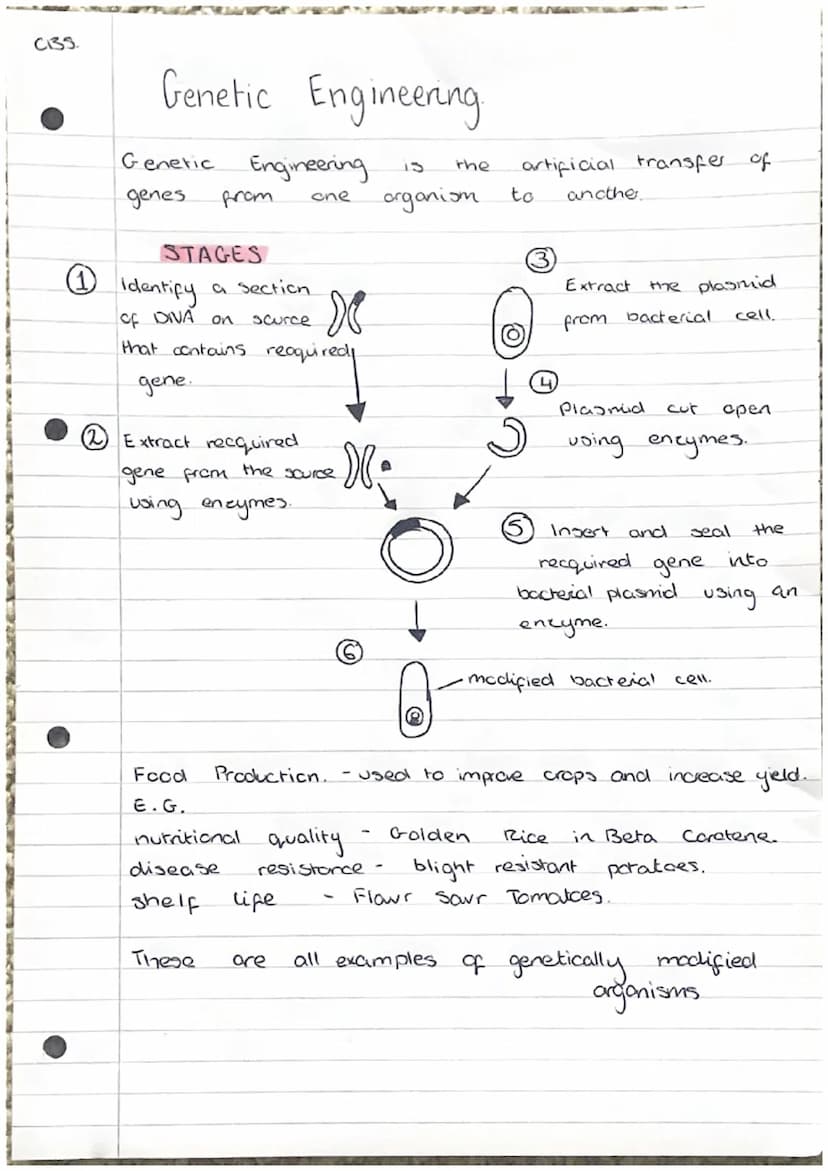 C135.
Genetic Engineering.
Genetic Engineering is the artificial transfer of
genes from one organism to another.
STAGES
① Identify a section
of DNA on source
that contains recquired
gene.
② Extract recquired
gene from the source
using enzymes.
③
Extract the plasmid
from bacterial cell.
④
Plasmid cut open
using enzymes.
⑤ Insert and seal the
recquired gene into
bacterial plasmid using an
enzyme.
⑥
modified bacterial cell.
Food Production. - used to improve crops and increase yield.
E.G.
nutritional quality - Golden Rice in Beta Carotene.
disease resistance - blight resistant potatoes.
shelf life - Flavr Savr Tomatoes.
These are all examples of genetically modified
organisms